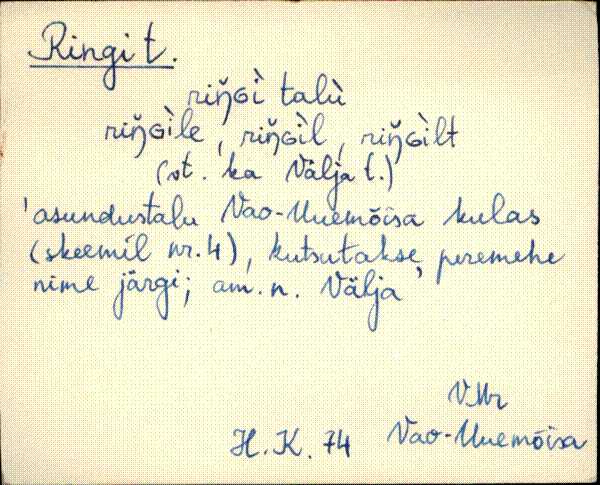 Ringi t.
riŋ̆ɢì talù
riŋ̆ɢìle, riŋ̆ɢìl, riŋ̆ɢìlt
(vt. ka Välja t.)
'asundustalu Vao-Uuemõisa külas
(skeemil nr. 4), kutsutakse peremehe
nime järgi; am. n. Välja'
V.Mr
H.K. 74 Vao-Uuemõisa